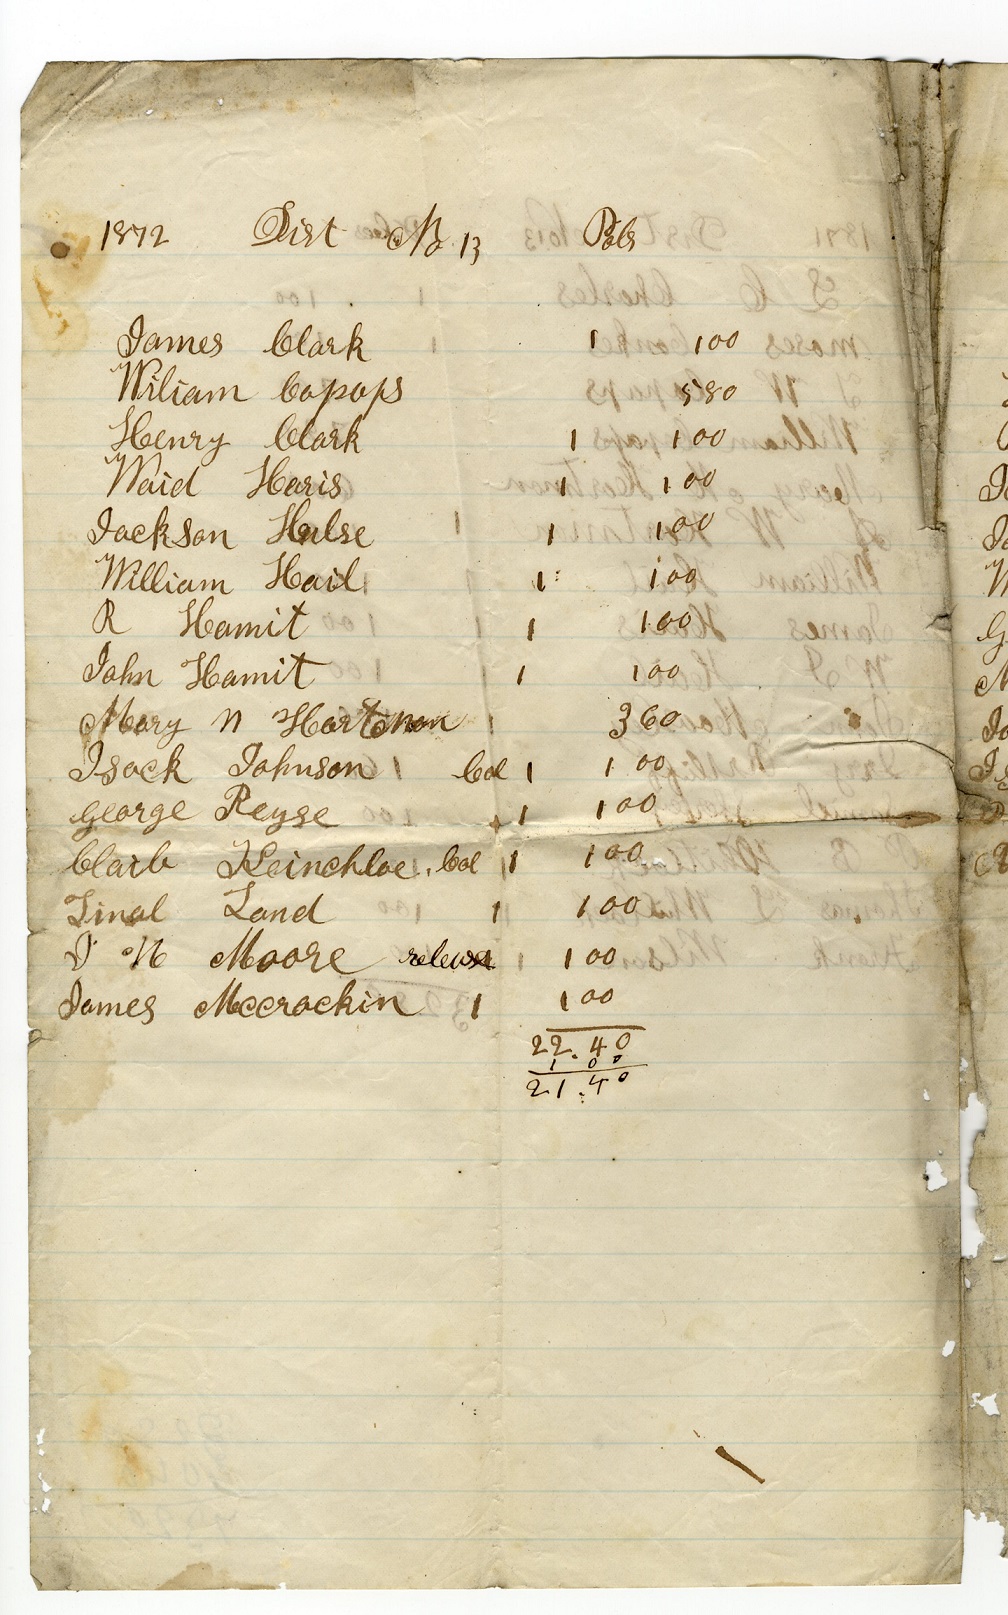 1872 Dist No 13 Pols
James Clark 1 100
Wiliam Copops 580
Henry Clark 1 100
Waid Haris 1 100
Jackson Hulse 1 100
William Hail 1 100
R Hamit 1 100
John Hamit 1 100
Mary N Hartman 360
Isack Johnson Col 1 100
George Keyse 1 100
Claib Keinchloe, Col 1 100
Tinal Land 1 100
J N Moore 100
James Mccrackin 1 100
22.40
1 00
21.40